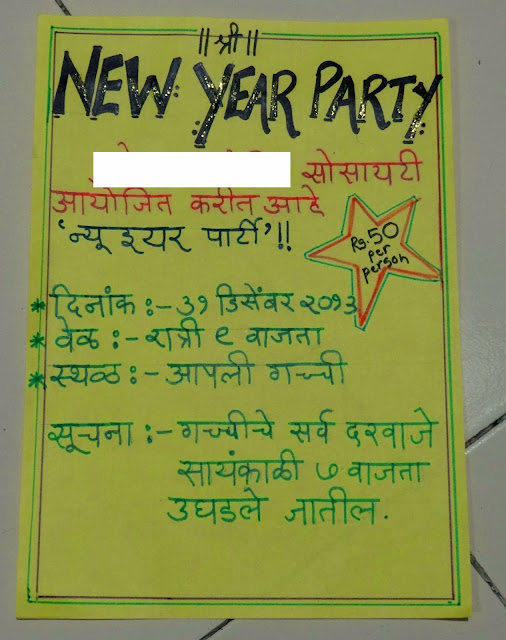 ||श्री||
NEW YEAR PARTY
सोसायटी
आयोजित करीत आहे
'न्यू इयर पार्टी'!!
Rs. 50
per
person
* दिनांक :- ३१ डिसेंबर २०१३
* वेळ :- रात्री ९ वाजता
* स्थळ :- आपली गच्ची
सूचना :- गच्चीचे सर्व दरवाजे
सायंकाळी ७ वाजता
उघडले जातील.